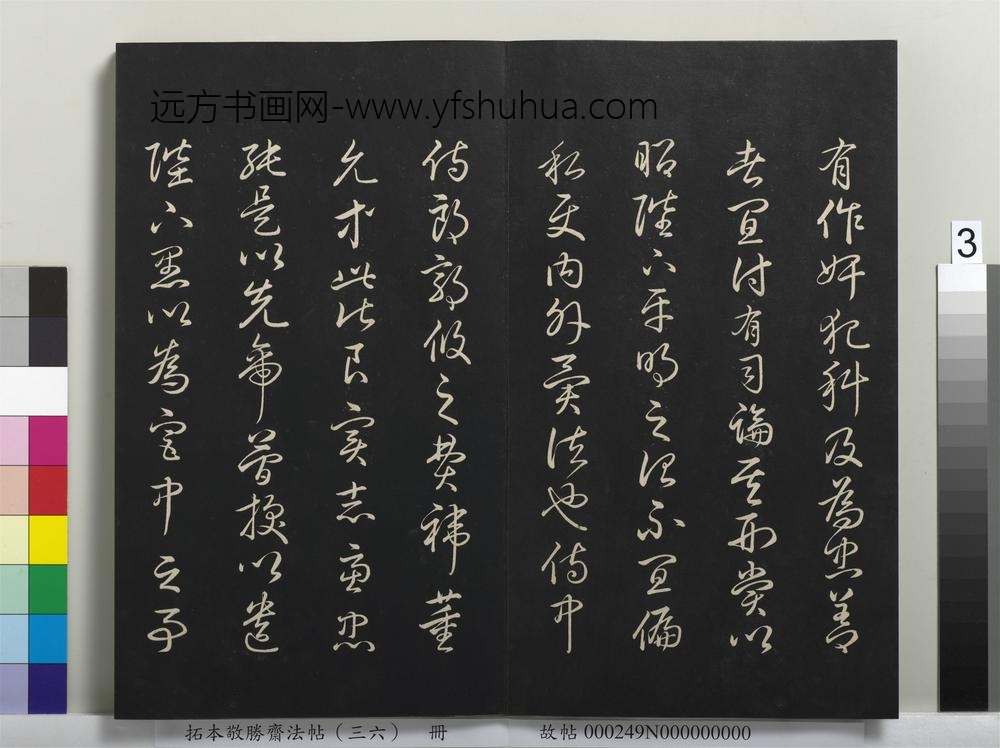 远方书画网-www.yfshuhua.com
有作奸犯科及為忠善
者宜付有司論其刑賞以
昭陛下平明之治不宜偏
私使內外異法也侍中
侍郎郭攸之費禕董
允等此皆良實志慮忠
純是以先帝簡拔以遺
陛下愚以為宮中之事
3
拓本敬勝齋法帖（三六） 冊 故帖 000249N000000000